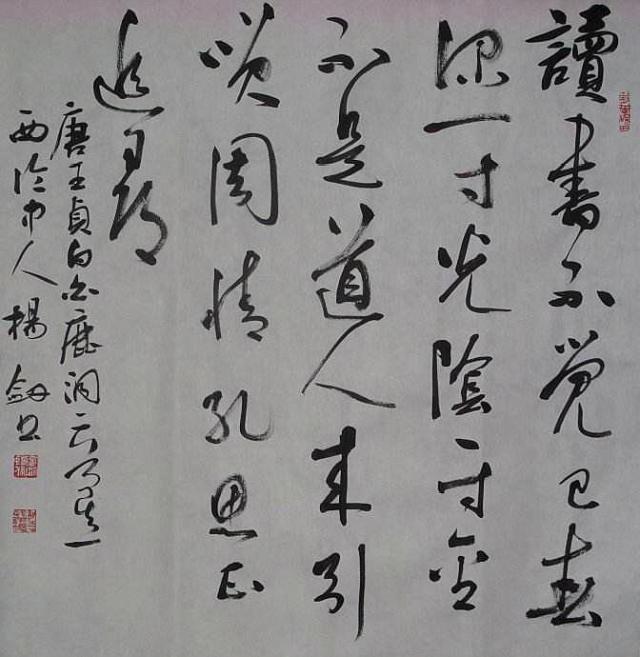 讀書不覺已春
深一寸光陰一寸金
不是道人來引
笑周情孔思正
追尋
唐王貞白白鹿洞二首其一
西泠人楊劔書